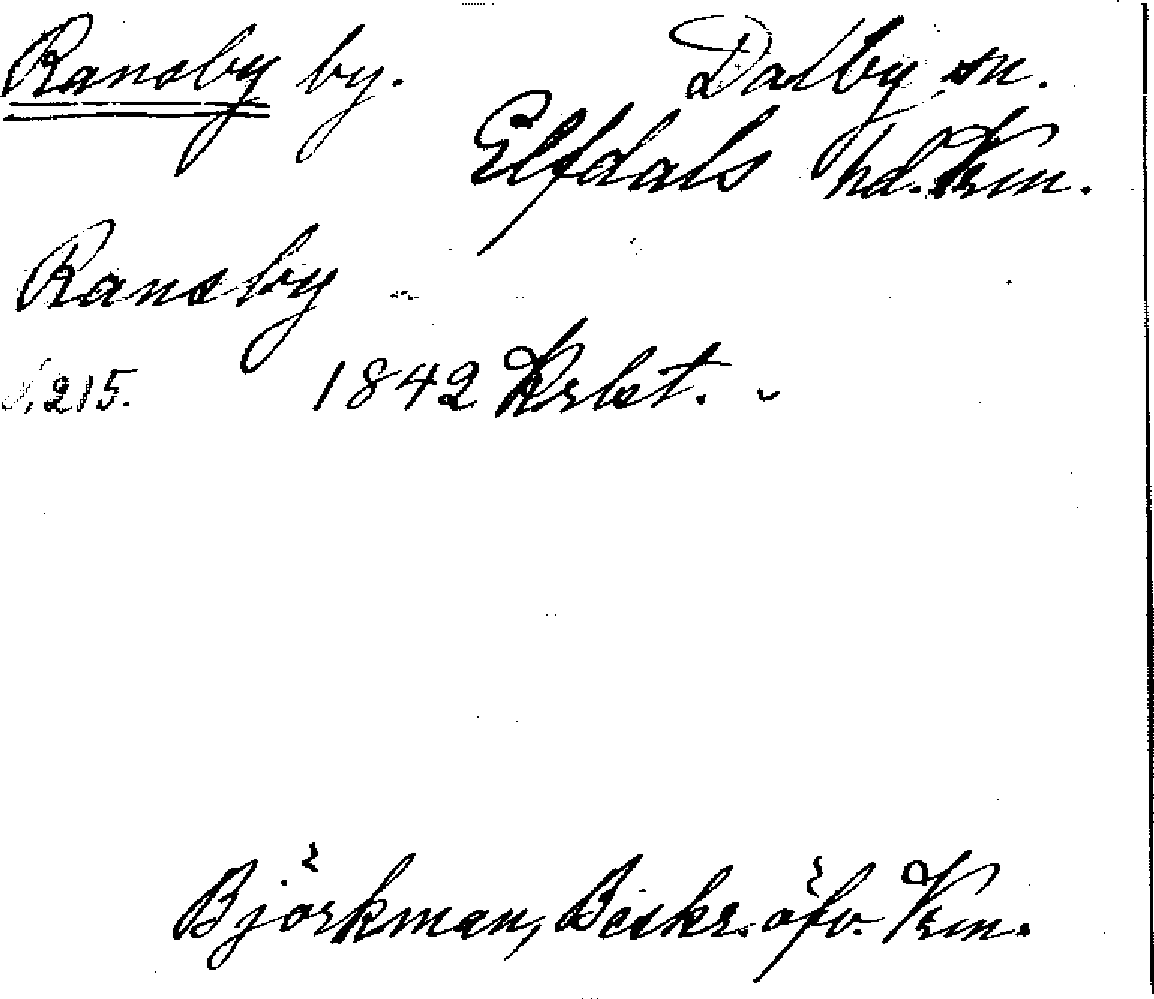 Ransby by. Dalby sn.
Elfdals hd. Vrm.
Ransby
S. 215. 1842 Krbet.
Björkman, Beskr. öfv. Vrm.